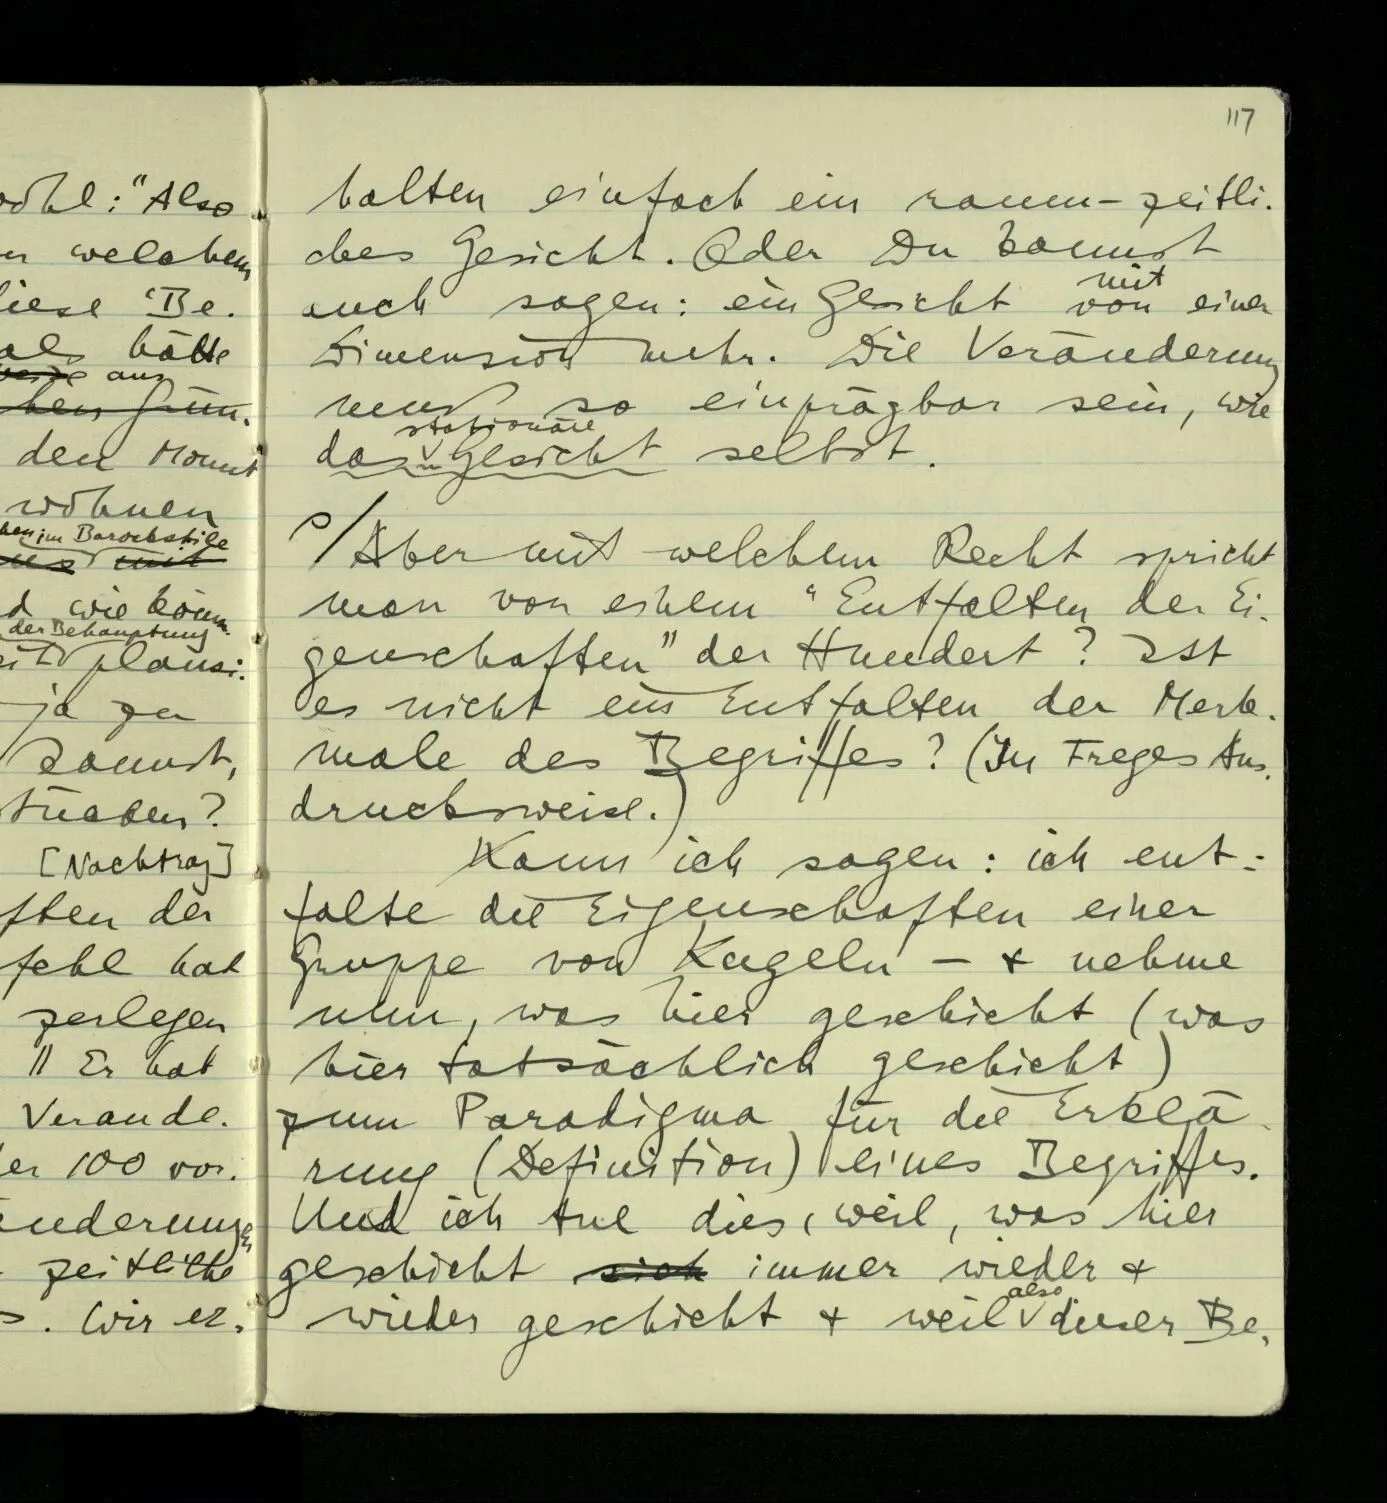 wohl: "Also
welchem
diese Be.
als hätte
aus
Grün.
den Mount
wöhnen
im Barockstile
mit
wie könn.
der Behauptung
plausi:
ja zu
kommst,
[Nachtrag]
ften der
fehl hat
zerlegen
" Er hat
Verände.
100 vor.
änderung
zeitliche
. Wir er.
117
halten einfach ein raum-zeitli.
ches Gesicht. Oder Du kannst
mit
auch sagen: ein Gesicht von einer
Dimension mehr. Die Veränderung
muß so einprägbar sein, wie
stationäre
das Gesicht selbst.
s/Aber mit welchem Recht spricht
man von einem "Entfalten der Ei.
genschaften" der Hundert? Ist
es nicht ein Entfalten der Merk.
male des Begriffes? (In Freges Aus.
drucksweise.)
Kann ich sagen: ich ent:
falte die Eigenschaften einer
Gruppe von Kugeln – & nehme
nun, was hier geschieht (was
hier tatsächlich geschieht)
zum Paradigma für die Erklä.
rung (Definition) eines Begriffes.
Und ich tue dies, weil, was hier
geschieht sich immer wieder &
also
wieder geschieht & weil dieser Be,